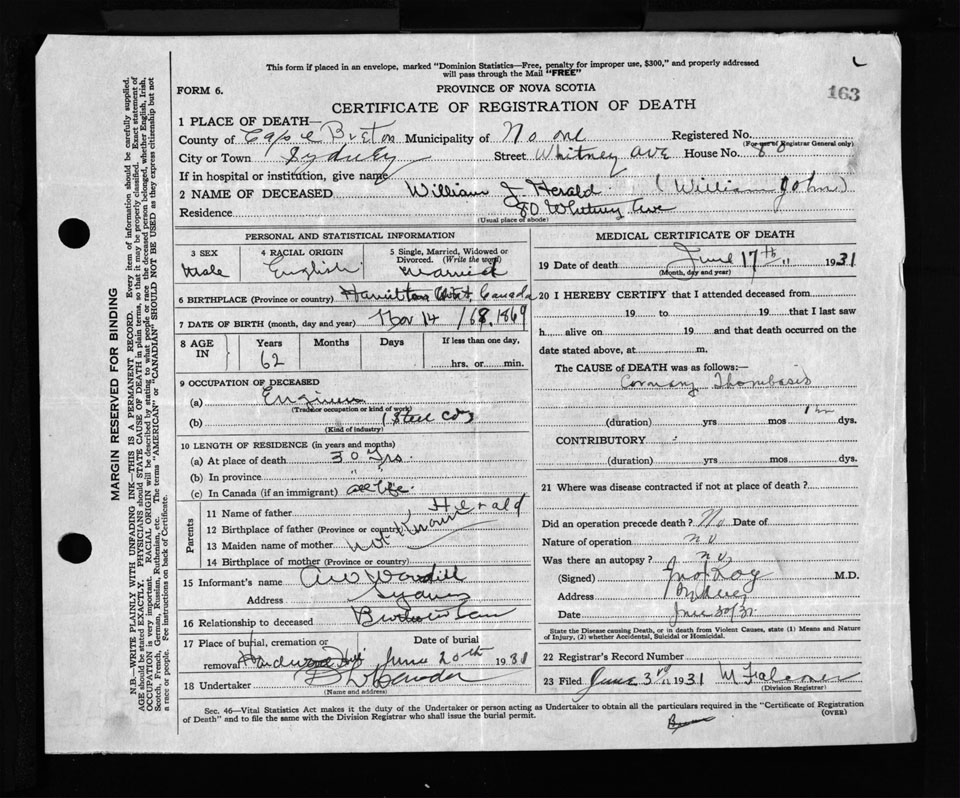 This form if placed in an envelope, marked "Dominion Statistics—Free, penalty for improper use, $300," and properly addressed
will pass through the Mail "FREE"
163
FORM 6.
PROVINCE OF NOVA SCOTIA
CERTIFICATE OF REGISTRATION OF DEATH
1 PLACE OF DEATH—
County of Cape Breton Municipality of No one Registered No.
(For use of Registrar General only)
City or Town Sydney Street Whitney Ave House No. 80
If in hospital or institution, give name
2 NAME OF DECEASED William J. Herald (William John)
Residence 80 Whitney Ave
(Usual place of abode)
PERSONAL AND STATISTICAL INFORMATION
3 SEX 4 RACIAL ORIGIN 5 Single, Married, Widowed or
Divorced. (Write the word)
Male English Married
6 BIRTHPLACE (Province or country) Hamilton Ont, Canada
7 DATE OF BIRTH (month, day and year) Nov 14 /68, 1869
8 AGE IN Years Months Days If less than one day,
62 hrs. or min.
9 OCCUPATION OF DECEASED
(a) Engineer
(Trade or occupation or kind of work)
(b) (Steel Co)
(Kind of industry)
10 LENGTH OF RESIDENCE (in years and months)
(a) At place of death 30 Yrs.
(b) In province " "
(c) In Canada (if an immigrant) all life.
Parents
11 Name of father Herald
12 Birthplace of father (Province or country)
13 Maiden name of mother not Known
14 Birthplace of mother (Province or country)
15 Informant's name
Address Sydney
16 Relationship to deceased
17 Place of burial, cremation or Date of burial
removal Hardwood Hill June 20th 1931
18 Undertaker
(Name and address)
MEDICAL CERTIFICATE OF DEATH
19 Date of death June 17th 1931
(Month, day and year)
20 I HEREBY CERTIFY that I attended deceased from
19 to 19 that I last saw
h alive on 19 and that death occurred on the
date stated above, at m.
The CAUSE of DEATH was as follows:—
Coronary Thombasis
1 hr
(duration) yrs mos dys.
CONTRIBUTORY
(duration) yrs mos dys.
21 Where was disease contracted if not at place of death?
Did an operation precede death? No Date of
Nature of operation no
Was there an autopsy? no
(Signed) M.D.
Address Sydney
Date June 20/31
State the Disease causing Death, or in death from Violent Causes, state (1) Means and Nature
of Injury, (2) whether Accidental, Suicidal or Homicidal.
22 Registrar's Record Number
23 Filed June 3rd 1931
(Division Registrar)
Sec. 46—Vital Statistics Act makes it the duty of the Undertaker or person acting as Undertaker to obtain all the particulars required in the "Certificate of Registration
of Death" and to file the same with the Division Registrar who shall issue the burial permit.
(OVER)
MARGIN RESERVED FOR BINDING
N.B.—WRITE PLAINLY WITH UNFADING INK—THIS IS A PERMANENT RECORD. Every item of information should be carefully supplied.
AGE should be stated EXACTLY. PHYSICIANS should STATE CAUSE OF DEATH in plain terms, so that it may be properly classified. Exact statement of
OCCUPATION is very important. RACIAL ORIGIN will be described by stating to what people or race the deceased person belonged, whether English, Irish,
Scotch, French, German, Russian, Ruthenian, etc. The terms "AMERICAN" or "CANADIAN" SHOULD NOT BE USED as they express citizenship but not
a race or people. See instructions on back of Certificate.